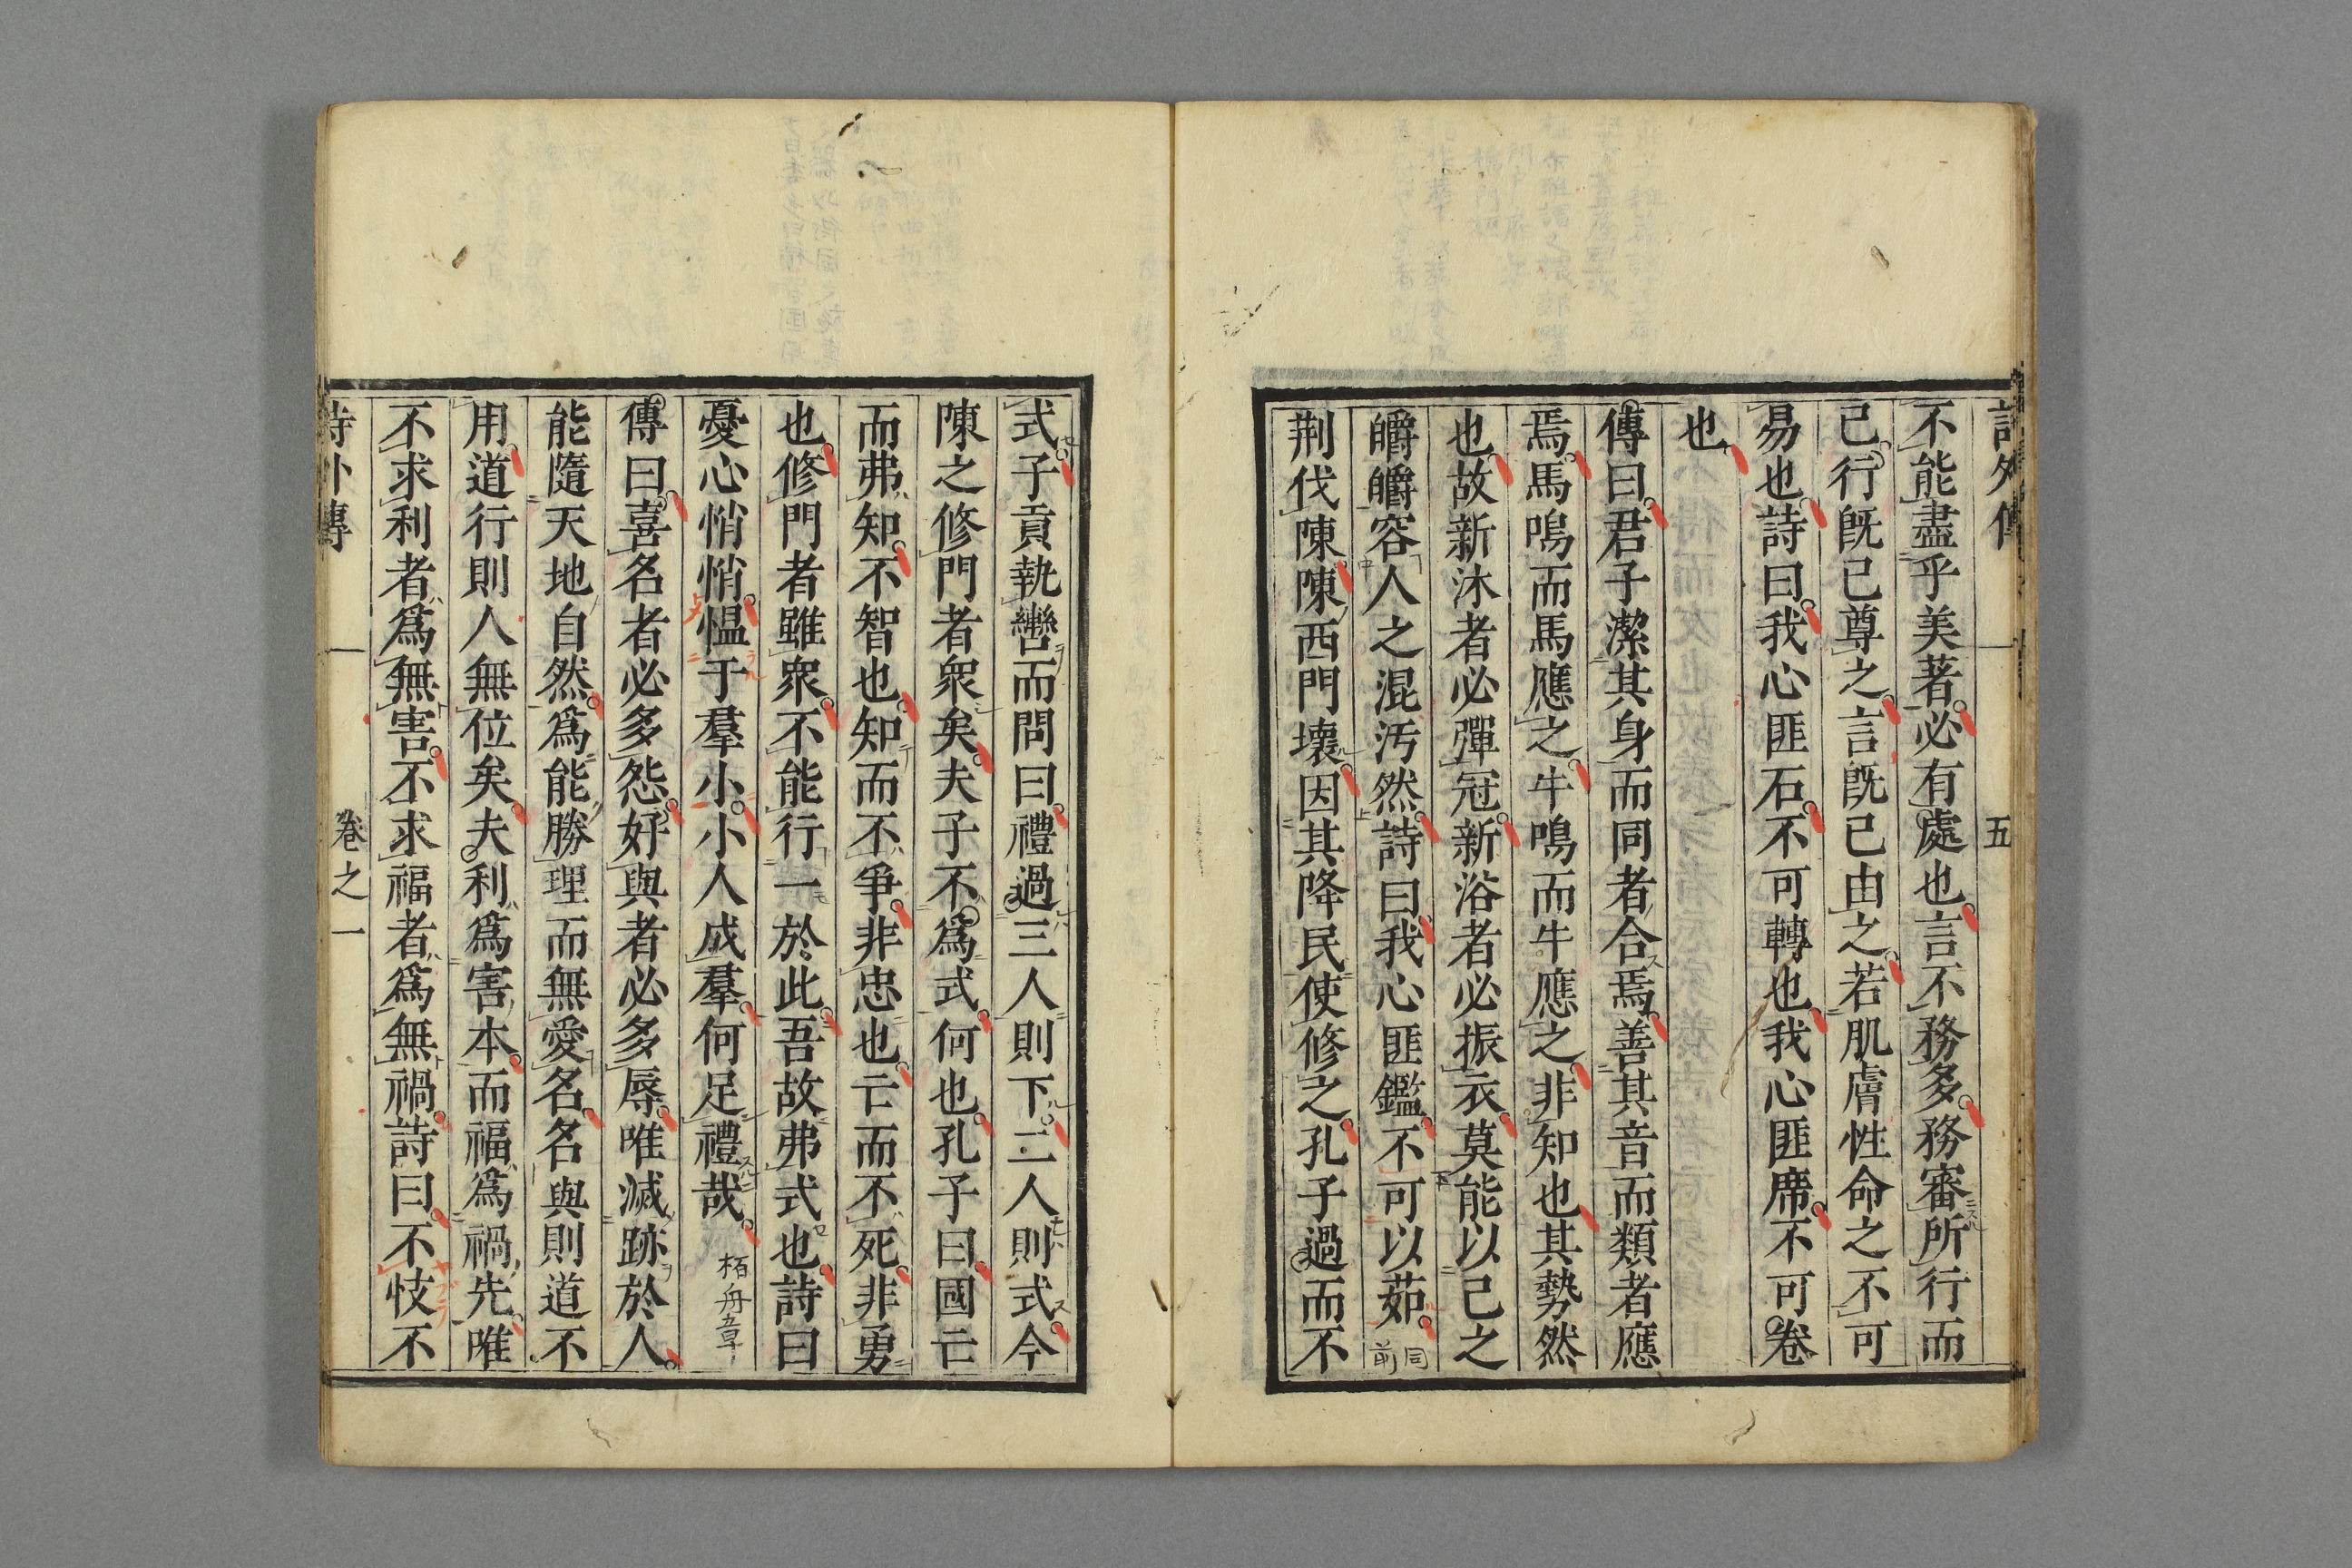 詩外傳 一 五
不能盡乎美著必有處也言不務多務審所行而
已行旣已尊之言旣已由之若肌膚性命之不可
易也詩曰我心匪石不可轉也我心匪席不可卷
也
傳曰君子潔其身而同者合焉善其音而類者應
焉馬鳴而馬應之牛鳴而牛應之非知也其勢然
也故新沐者必彈冠新浴者必振衣莫能以己之
皭皭容人之混汚然詩曰我心匪鑑不可以茹 同前
荆伐陳陳西門壞因其降民使修之孔子過而不
式子貢執轡而問曰禮過三人則下二人則式今
陳之修門者衆矣夫子不爲式何也孔子曰國亡
而弗知不智也知而不爭非忠也亡而不死非勇
也修門者雖衆不能行一於此吾故弗式也詩曰
憂心悄悄愠于羣小小人成羣何足禮哉 栢舟五章
傳曰喜名者必多怨好與者必多辱唯滅跡於人
能隨天地自然爲能勝理而無愛名名與則道不
用道行則人無位矣夫利爲害本而福爲禍先唯
不求利者爲無害不求福者爲無禍詩曰不忮不
詩外傳 一 卷之一